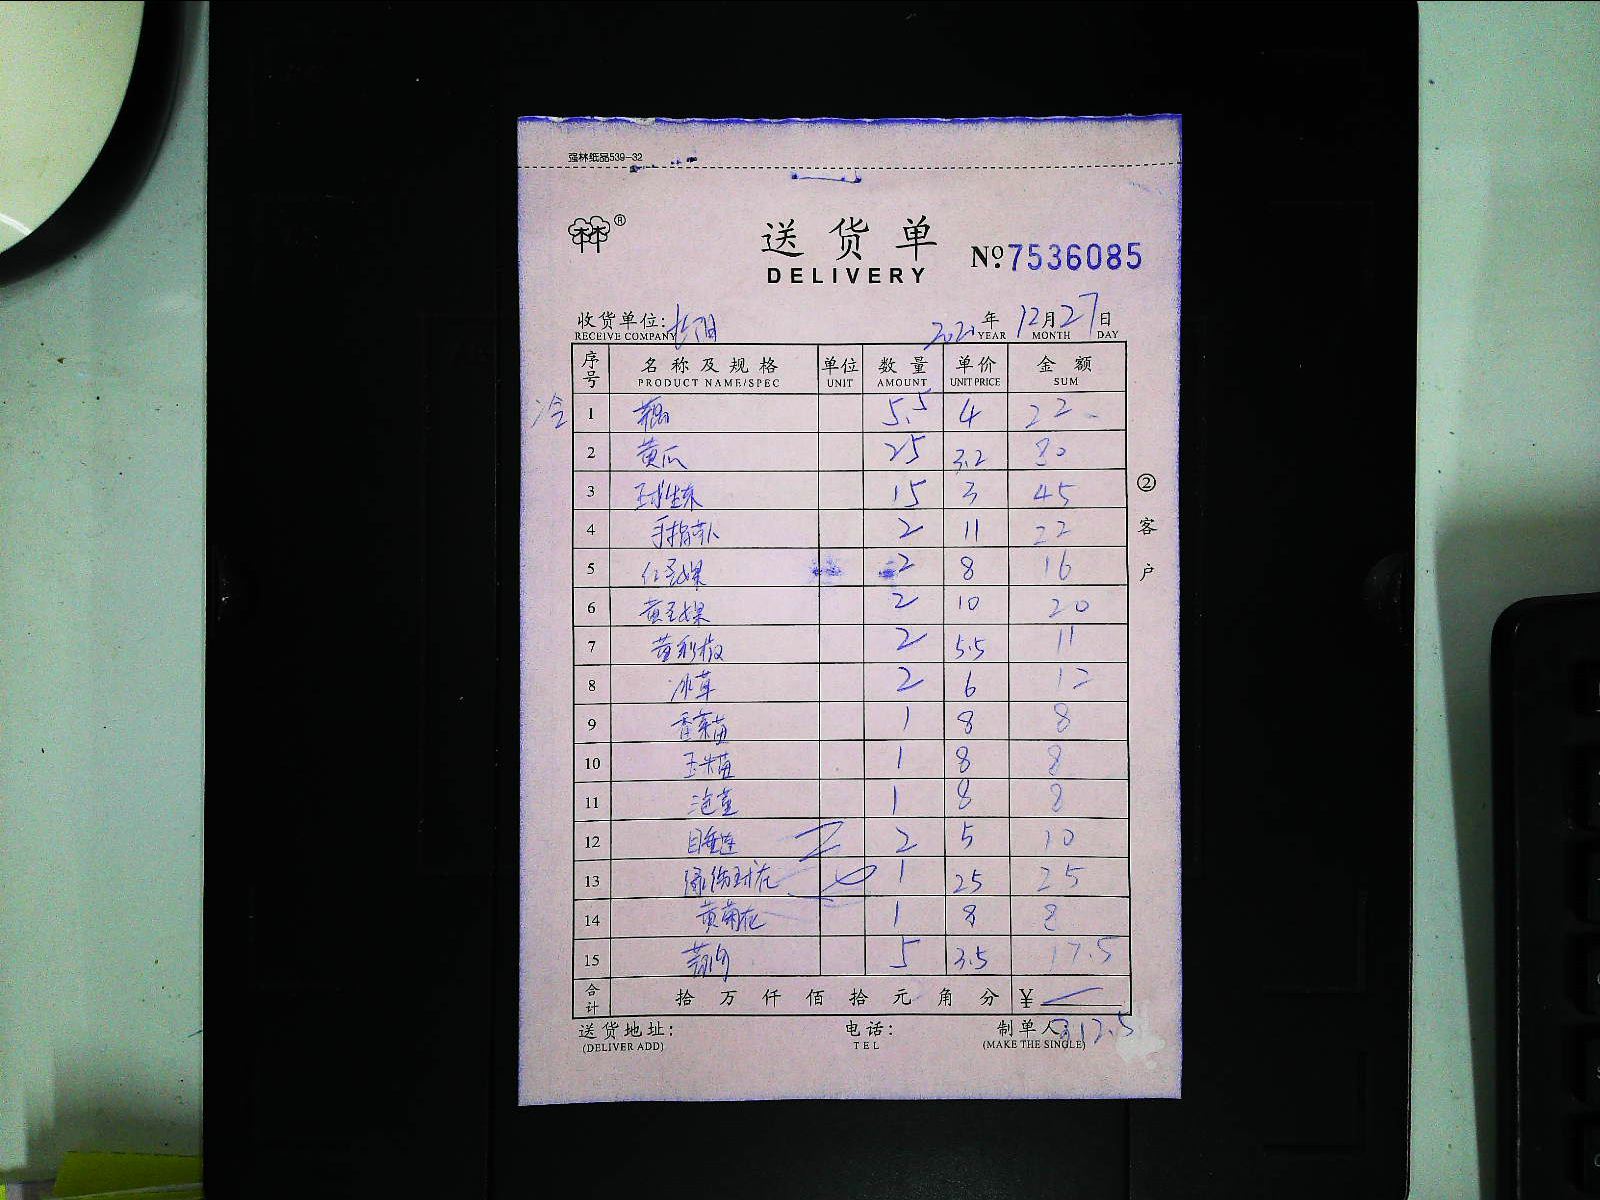 强林纸品539-32
®
送货单
DELIVERY
№.7536085
收货单位:长阳
RECEIVE COMPANY
2021年12月27日
YEAR MONTH DAY
序号 名称及规格 单位 数量 单价 金额
PRODUCT NAME/SPEC UNIT AMOUNT UNIT PRICE SUM
冷 1 藕 5.5 4 22-
2 黄瓜 25 3.2 80
3 球生菜 15 3 45
4 手指萝卜 2 11 22
5 红圣女果 2 8 16
6 黄圣女果 2 10 20
7 黄彩椒 2 5.5 11
8 冰草 2 6 12
9 香菜苗 1 8 8
10 玉米苗 1 8 8
11 1 8 8
12 2 5 10
13 1 25 25
14 黄菊花 1 8 8
15 5 3.5 17.5
合计 拾万仟佰拾元角分 ¥
送货地址: 电话: 制单人: 312.5
(DELIVER ADD) TEL (MAKE THE SINGLE)
②客户